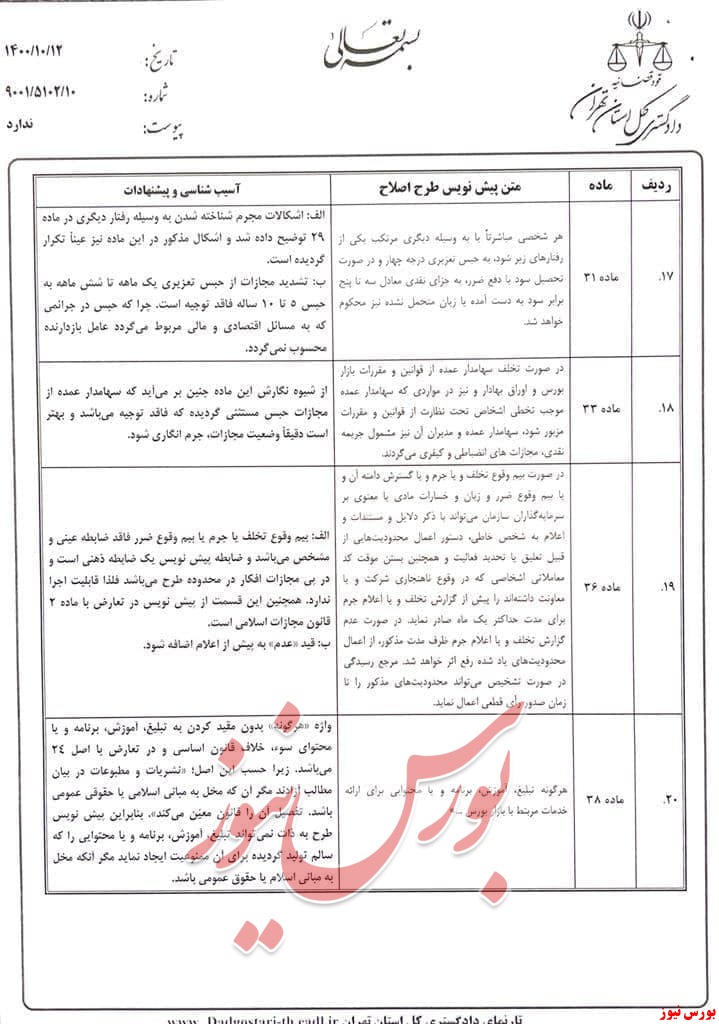 بسمه تعالی
قوه قضائیه
دادگستری کل استان تهران
تاریخ: ۱۴۰۰/۱۰/۱۲
شماره: ۹۰۰۱/۵۱۰۲/۱۰
پیوست: ندارد
ردیف
ماده
متن پیش نویس طرح اصلاح
آسیب شناسی و پیشنهادات
۱۷.
ماده ۳۱
هر شخصی مباشرتاً یا به وسیله دیگری مرتکب یکی از
رفتارهای زیر شود، به حبس تعزیری درجه چهار و در صورت
تحصیل سود یا دفع ضرر، به جزای نقدی معادل سه تا پنج
برابر سود به دست آمده یا زیان متحمل نشده نیز محکوم
خواهد شد.
الف: اشکالات مجرم شناخته شدن به وسیله رفتار دیگری در ماده
۲۹ توضیح داده شد و اشکال مذکور در این ماده نیز عیناً تکرار
گردیده است.
ب: تشدید مجازات از حبس تعزیری یک ماهه تا شش ماهه به
حبس ۵ تا ۱۰ ساله فاقد توجیه است. چرا که حبس در جرائمی
که به مسائل اقتصادی و مالی مربوط می‌گردد عامل بازدارنده
محسوب نمی‌گردد.
۱۸.
ماده ۳۳
در صورت تخلف سهامدار عمده از قوانین و مقررات بازار
بورس و اوراق بهادار و نیز در مواردی که سهامدار عمده
موجب تخطی اشخاص تحت نظارت از قوانین و مقررات
مزبور شود، سهامدار عمده و مدیران آن نیز مشمول جریمه
نقدی، مجازات های انضباطی و کیفری می‌گردند.
از شیوه نگارش این ماده چنین بر می‌آید که سهامدار عمده از
مجازات حبس مستثنی گردیده که فاقد توجیه می‌باشد و بهتر
است دقیقاً وضعیت مجازات، جرم انگاری شود.
۱۹.
ماده ۳۶
در صورت بیم وقوع تخلف و یا جرم و یا گسترش دامنه آن و
یا بیم وقوع ضرر و زیان و خسارات مادی یا معنوی بر
سرمایه‌گذاران سازمان می‌تواند با ذکر دلایل و مستندات و
اعلام به شخص خاطی، دستور اعمال محدودیت‌هایی از
قبیل تعلیق یا تحدید فعالیت و همچنین بستن موقت کد
معاملاتی اشخاصی که در وقوع ناهنجاری شرکت و یا
معاونت داشته‌اند را پیش از گزارش تخلف و یا اعلام جرم
برای مدت حداکثر یک ماه صادر نماید. در صورت عدم
گزارش تخلف و یا اعلام جرم ظرف مدت مذکور، از اعمال
محدودیت‌های یاد شده رفع اثر خواهد شد. مرجع رسیدگی
در صورت تشخیص می‌تواند محدودیت‌های مذکور را تا
زمان صدور رأی قطعی اعمال نماید.
الف: بیم وقوع تخلف یا جرم یا بیم وقوع ضرر فاقد ضابطه عینی و
مشخص می‌باشد و ضابطه پیش نویس یک ضابطه ذهنی است و
در پی مجازات افکار در محدوده طرح می‌باشد فلذا قابلیت اجرا
ندارد. همچنین این قسمت از پیش نویس در تعارض با ماده ۲
قانون مجازات اسلامی است.
ب: قید «عدم» به پیش از اعلام اضافه شود.
۲۰.
ماده ۳۸
هرگونه تبلیغ، آموزش، برنامه و یا محتوایی برای ارائه
خدمات مرتبط با بازار بورس ...
واژه «هرگونه» بدون مقید کردن به تبلیغ، آموزش، برنامه و یا
محتوای سوء، خلاف قانون اساسی و در تعارض با اصل ۲۴
می‌باشد. زیرا حسب این اصل؛ «نشریات و مطبوعات در بیان
مطالب آزادند مگر آن که مخل به مبانی اسلامی یا حقوقی عمومی
باشد. تفصیل آن را قانون معین می‌کند». بنابراین پیش نویس
طرح به ذات نمی‌تواند تبلیغ، آموزش، برنامه و یا محتوایی را که
سالم تولید گردیده برای آن ممنوعیت ایجاد نماید مگر آنکه مخل
به مبانی اسلام یا حقوق عمومی باشد.
بورس نیوز
تارنمای دادگستری کل استان تهران www. Dadgostari-th.eadl.ir
بورس نیوز